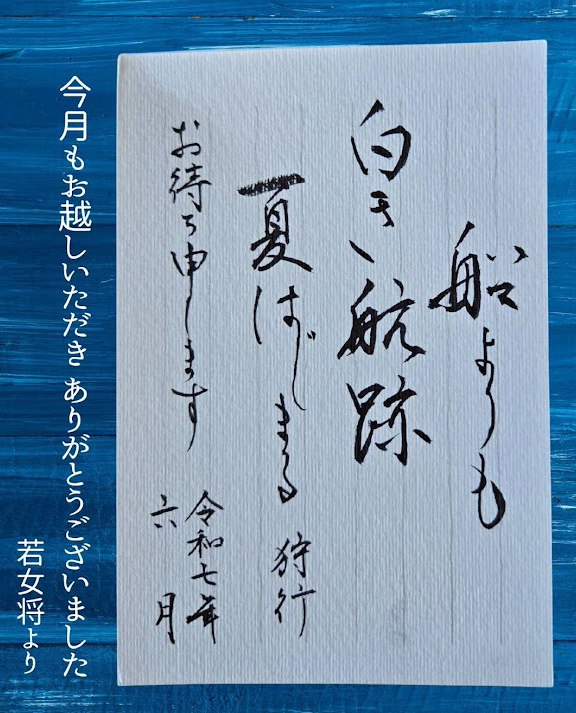 船よりも
白き航跡
夏はじまる 狩行
お待ち申します
令和七年
六月
今月もお越しいただき ありがとうございました
若女将より